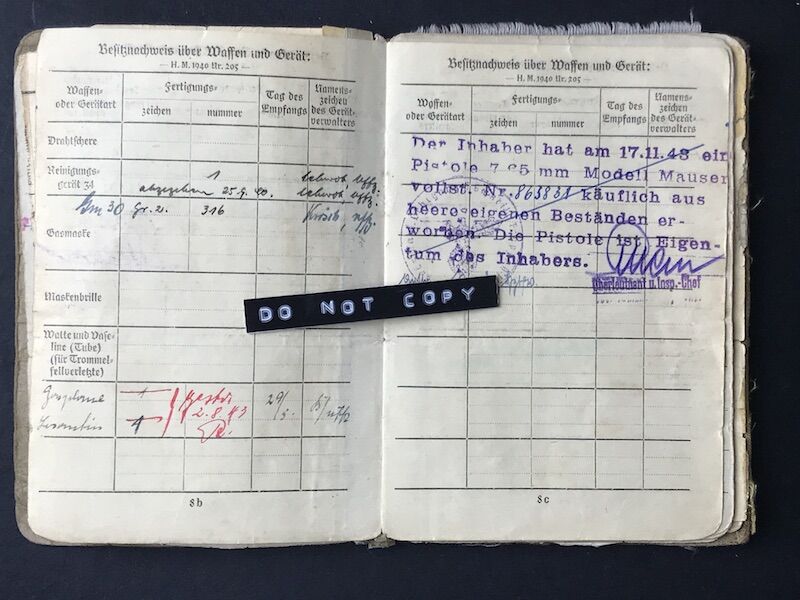 Besitznachweis über Waffen und Gerät:
— H. M. 1940 Nr. 205 —
Waffen- oder Geräteart
Fertigungs-
zeichen
nummer
Tag des Empfangs
Namens-zeichen des Gerät-verwalters
Drahtschere
Reinigungs-
gerät 34
1
abgegeben 25.9.40.
Gm 30
Gr. 2.
316
Gasmaske
Maskenbrille
Watte und Vase-
line (Tube)
(für Trommel-
fellverletzte)
Gasplane
1
29/
2.8.43
8b
DO NOT COPY
Besitznachweis über Waffen und Gerät:
— H. M. 1940 Nr. 205 —
Waffen- oder Geräteart
Fertigungs-
zeichen
nummer
Tag des Empfangs
Namens-zeichen des Gerät-verwalters
Der Inhaber hat am 17.11.43 ein
Pistole 7,65 mm Modell Mauser
vollst. Nr. 863831 käuflich aus
heereseigenen Beständen er-
worben. Die Pistole ist Eigen-
tum des Inhabers.
Oberleutnant u. Insp.-Chef
8c